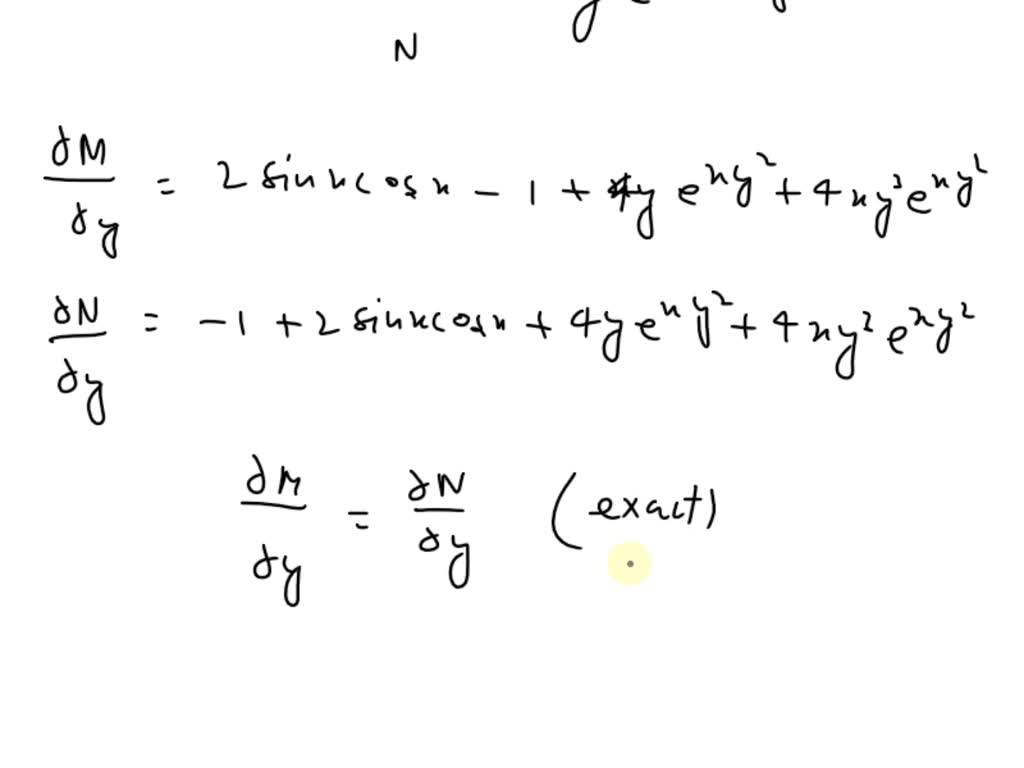 N
∂M/∂y = 2 sinx cosx - 1 + 4y e^xy² + 4xy³e^xy²
∂N/∂y = -1 + 2 sinx cosx + 4y e^xy² + 4xy² e^xy²
∂M/∂y = ∂N/∂y (exact)